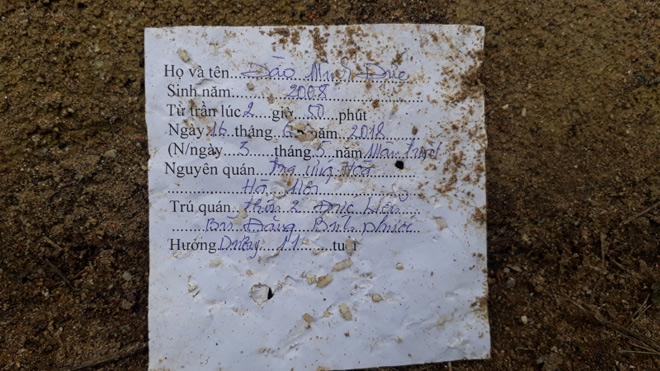 Họ và tên...Đào Minh Đức
Sinh năm............2008
Từ trần lúc 2 giờ 50 phút
Ngày 16 tháng 6 năm 2018
(N/ngày 3 tháng 5 năm Mậu Tuất
Nguyên quán
Hà Nội
Trú quán thôn 2 Đức Liễu
Bù Đăng Bình Phước
Hưởng Dương 11 tuổi